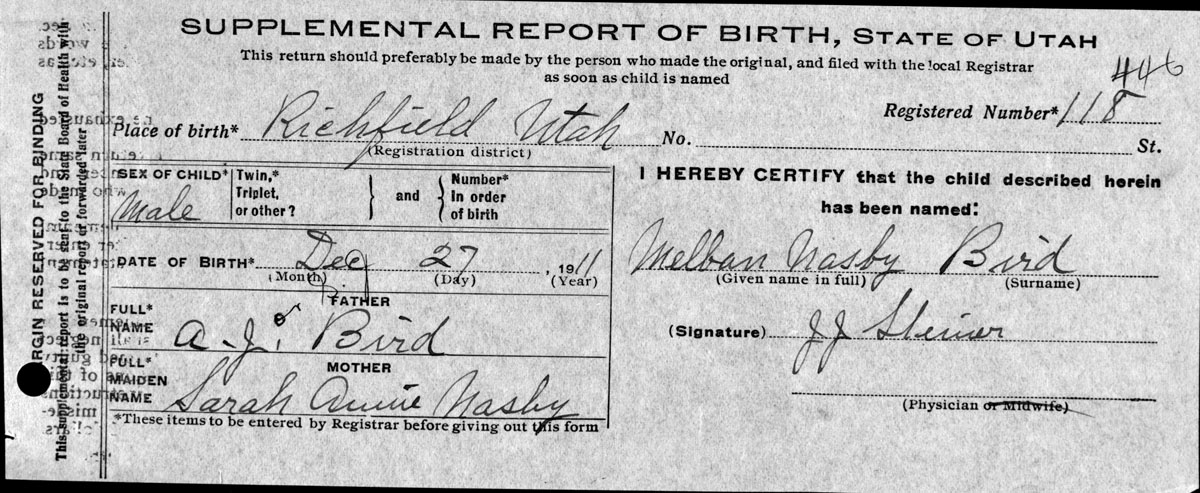 SUPPLEMENTAL REPORT OF BIRTH, STATE OF UTAH
This return should preferably be made by the person who made the original, and filed with the local Registrar
as soon as child is named
446
Registered Number* 118
Place of birth* Richfield Utah No. St.
(Registration district)
SEX OF CHILD* Male
Twin,* Triplet, or other?
and
Number* In order of birth
I HEREBY CERTIFY that the child described herein
has been named:
DATE OF BIRTH* Dec 27, 1911
(Month) (Day) (Year)
Melban Nasby Bird
(Given name in full) (Surname)
FATHER
FULL* NAME A. J. Bird
(Signature) J J Steiner
MOTHER
FULL* MAIDEN NAME Sarah Annie Nasby
(Physician or Midwife)
*These items to be entered by Registrar before giving out this form
MARGIN RESERVED FOR BINDING
This supplemental report is to be sent to the State Board of Health with
the original report or forwarded later